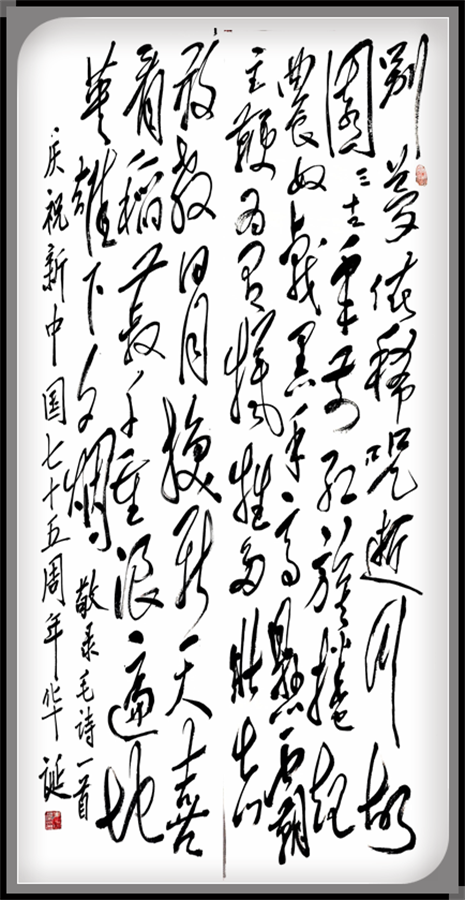 别梦依稀咒逝川故
园三十二年前红旗捲起
農奴戟黑手高悬霸
主鞭为有犧牲多壮志
敢教日月换新天喜
看稻菽千重浪遍地
英雄下夕烟
敬录毛诗一首
庆祝新中国七十五周年华诞